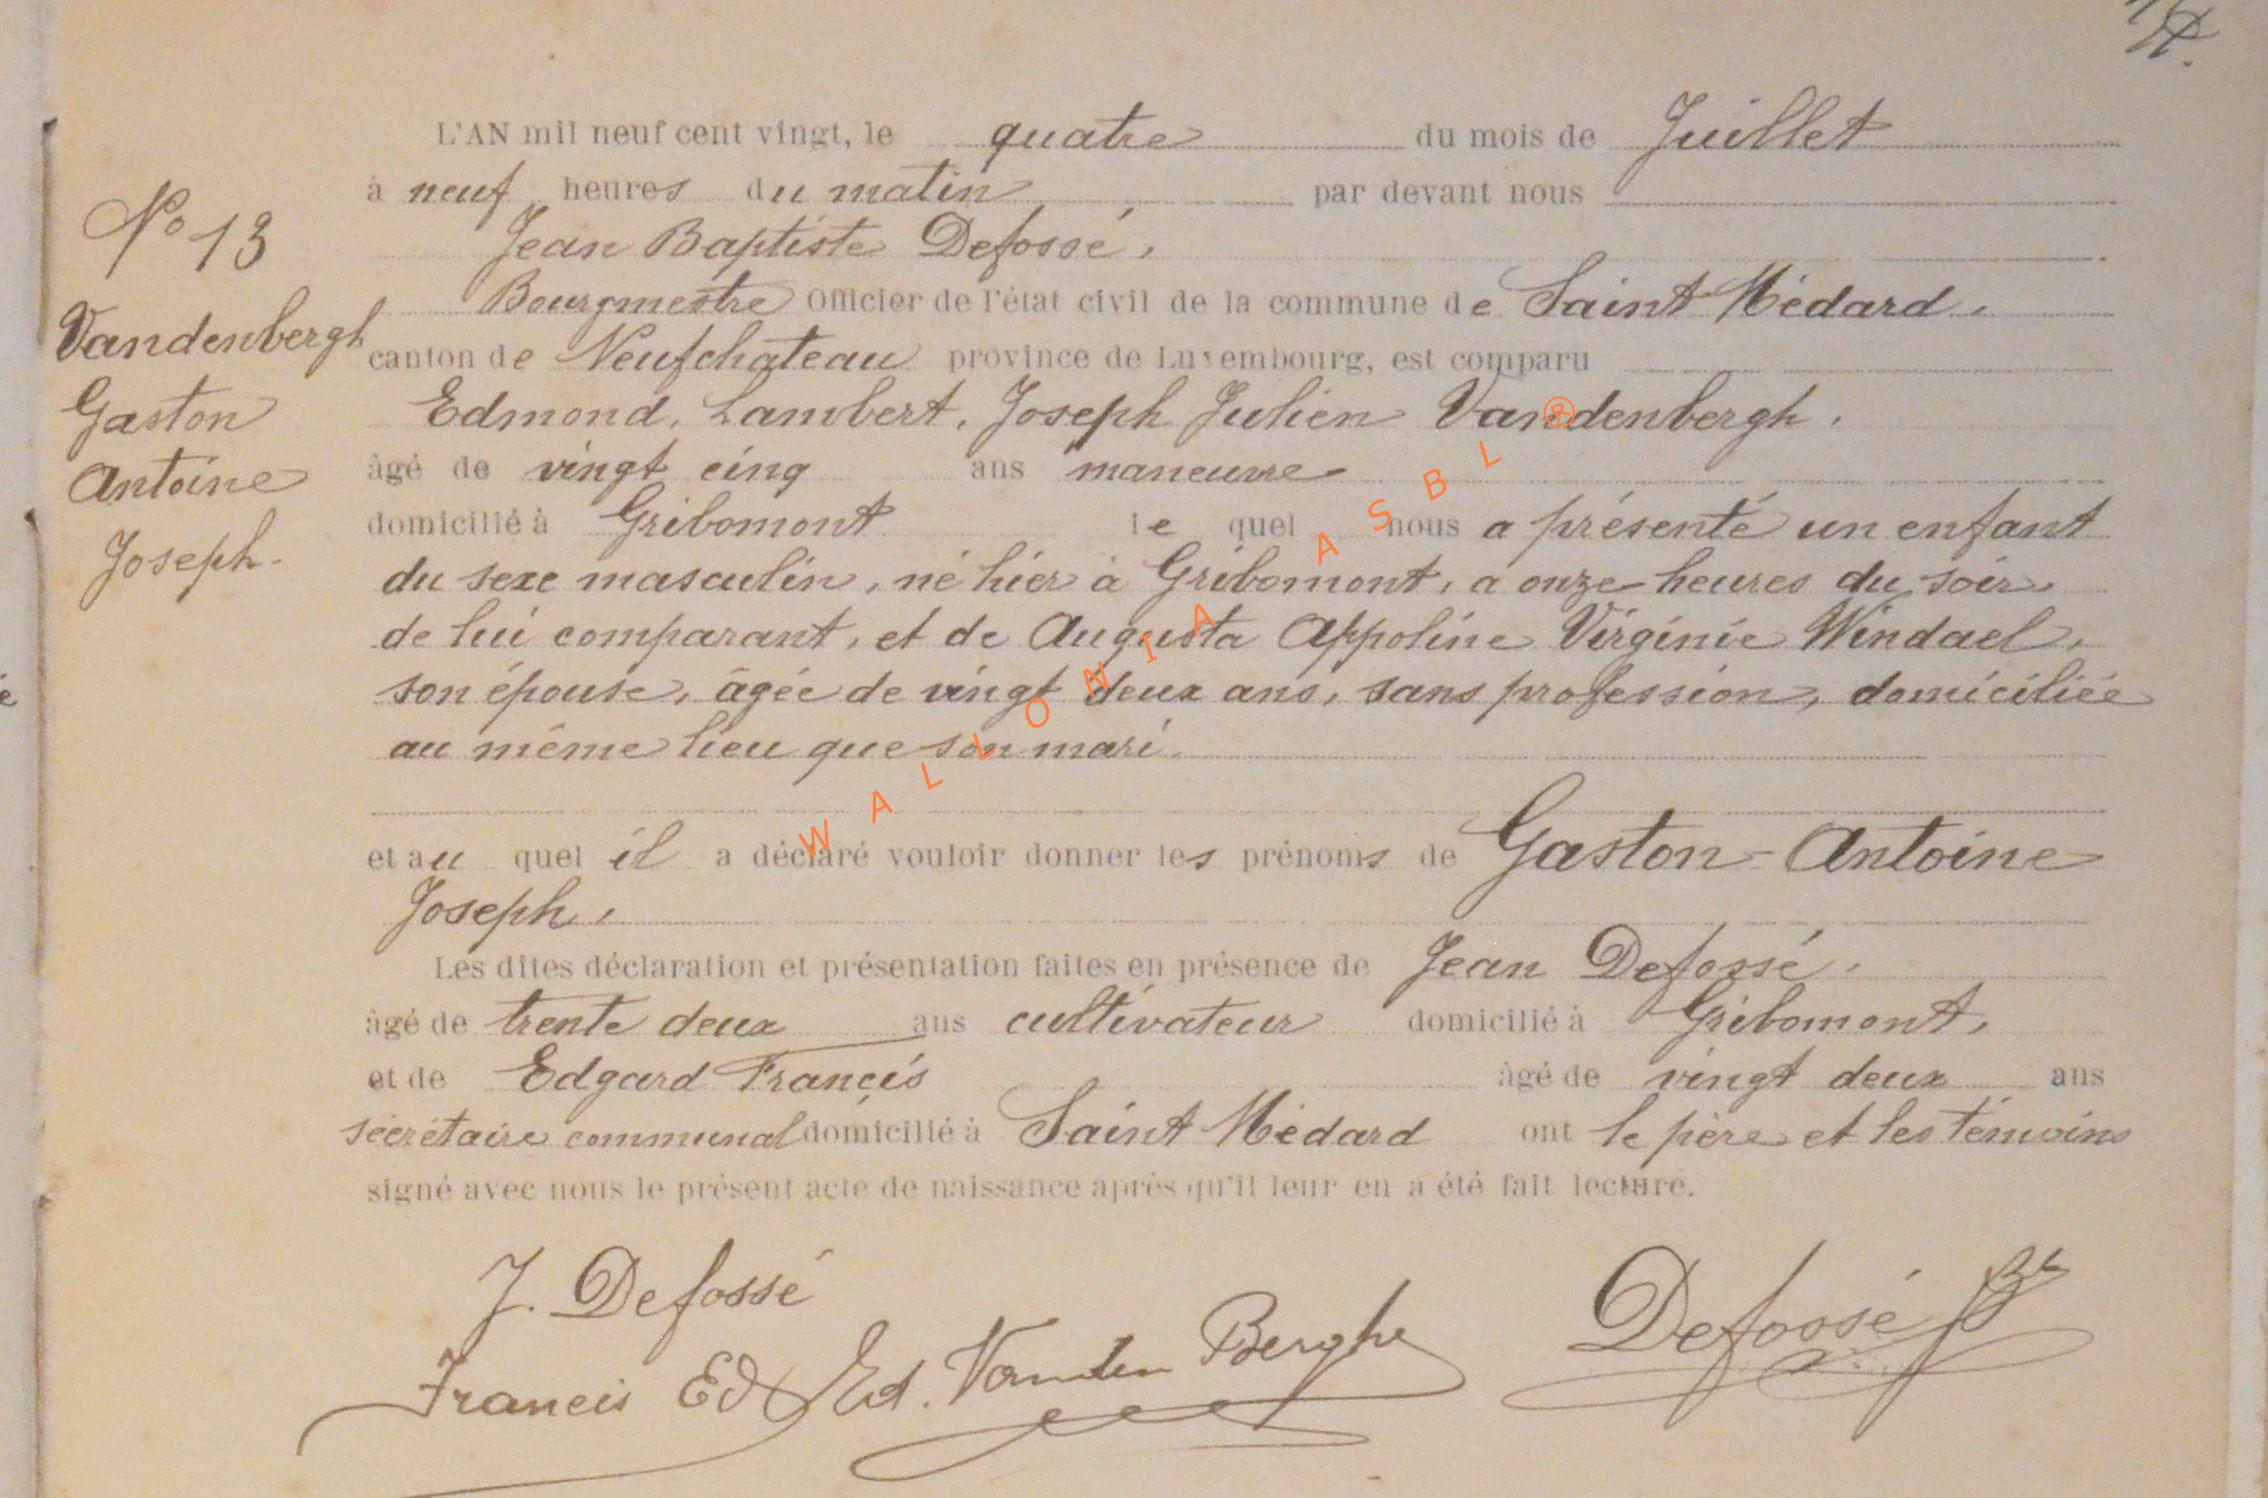 L'AN mil neuf cent vingt, le quatre du mois de Juillet
à neuf heures du matin par devant nous
Jean Baptiste Defossé,
Bourgmestre Officier de l'état civil de la commune de Saint Médard,
canton de Neufchateau province de Luxembourg, est comparu
Edmond, Lambert, Joseph Julien Vandenbergh,
âgé de vingt cinq ans maneuvre
domicilié à Gribomont le quel nous a présenté un enfant
du sexe masculin, né hier à Gribomont, à onze heures du soir,
de lui comparant, et de Augusta Appoline Virginie Windael,
son épouse, âgée de vingt deux ans, sans profession, domiciliée
au même lieu que son mari.
et au quel il a déclaré vouloir donner les prénoms de Gaston Antoine
Joseph,
Les dites déclaration et présentation faites en présence de Jean Defossé,
âgé de trente deux ans cultivateur domicilié à Gribomont,
et de Edgard Francis âgé de vingt deux ans
secrétaire communal domicilié à Saint Médard ont le père et les témoins
signé avec nous le présent acte de naissance après qu'il leur en a été fait lecture.
No 13
Vandenbergh
Gaston
Antoine
Joseph.
J. Defossé
Francis Ed
Ed. Vanden Berghe
Defossé JB
WALLONIA ASBL ®